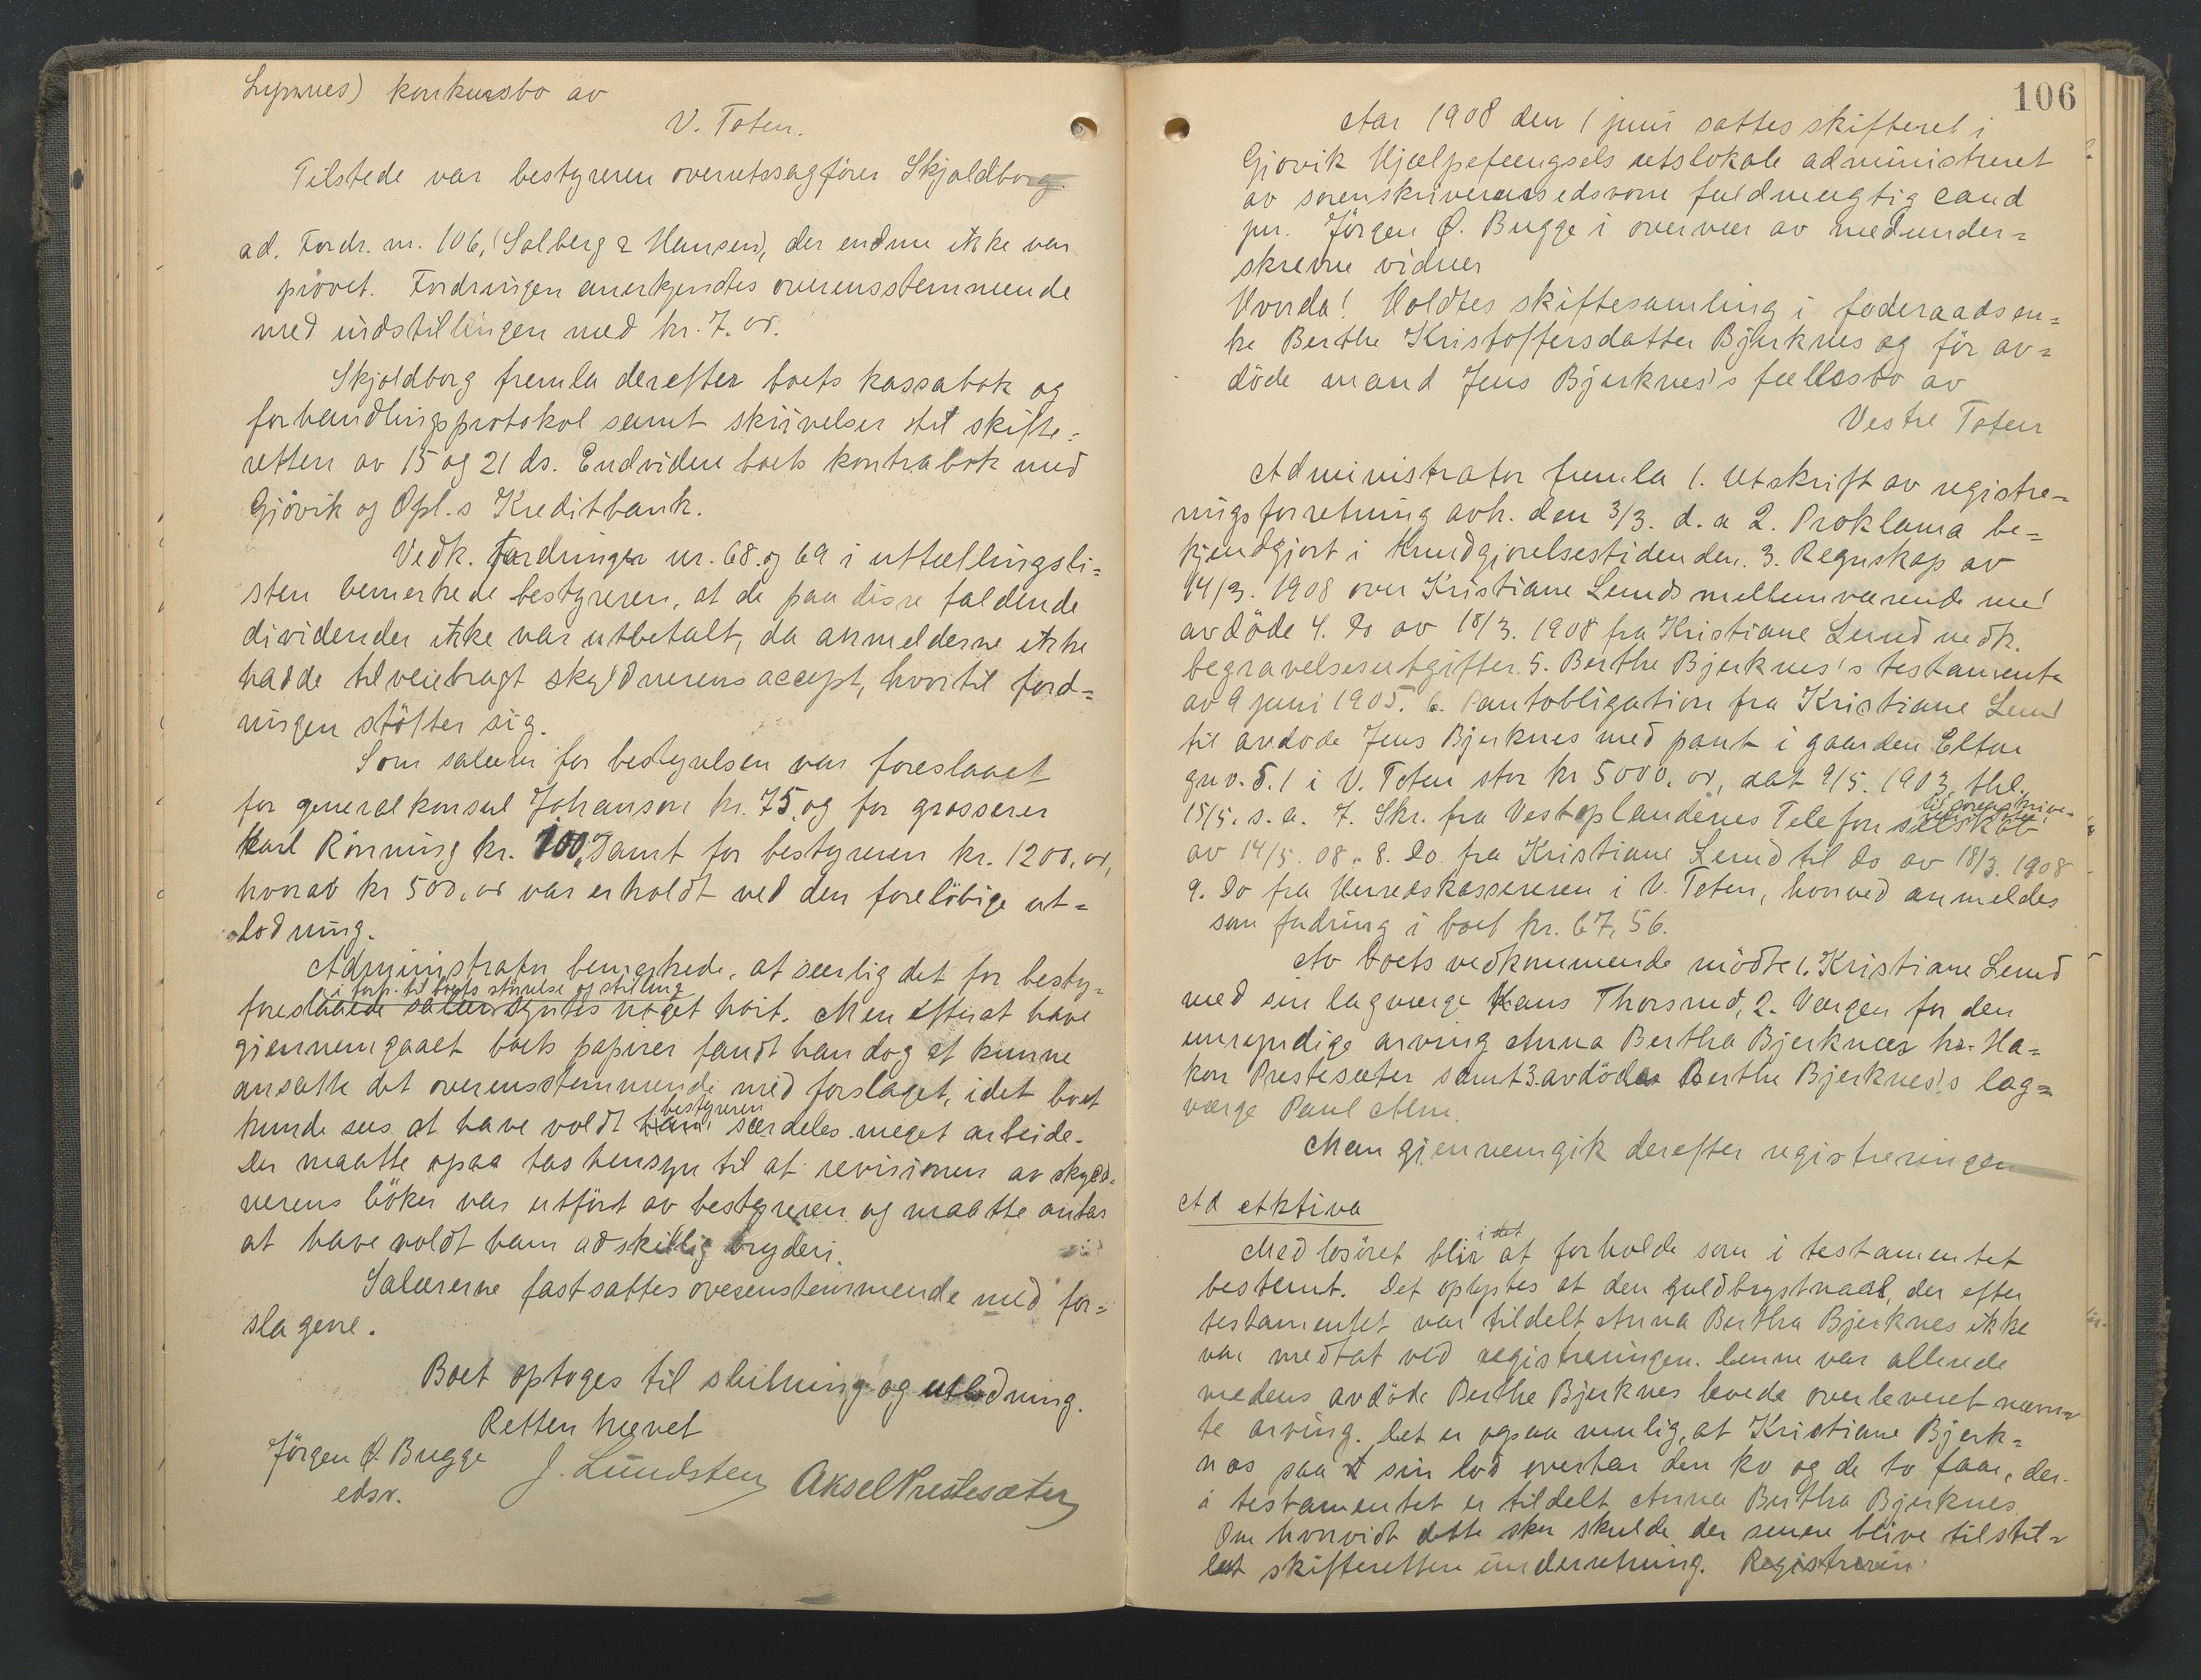 konkursbo av
V. Toten.
Tilstede var bestyreren overretssagfører Skjoldborg.
ad. Fordr. nr. 106, (Solberg & Hansen), der endnu ikke var
prövet. Fordringen anerkjendtes overensstemmende
med indstillingen med kr. 7. or.
Skjoldborg fremla derefter boets kassabok og
forhandlingsprotokol samt skrivelser til skifte=
retten av 15 og 21 ds. Endvidere boets kontrabok med
Gjövik og Opl.s Kreditbank.
Vedk. Fordringer nr. 68. og 69 i uttællingsli=
sten bemerkede bestyreren, at de paa disse faldende
dividender ikke var utbetalt, da anmelderne ikke
hadde tilveiebragt skyldnerens accept, hvortil ford=
ringen stötter sig.
Som salær for bestyrelsen var foreslaaet
for generalkonsul Johanson kr. 75, og for grosserer
Karl Rönning kr. 100, samt for bestyreren kr. 1200, or,
hvorav kr 500, or var erholdt ved den forelöbige ut=
lodning.
Administrator bemerkede, at særlig det for besty=
i forh. til boets styrelse og stilling
foreslaaede salær syntes noget höit. Men efter at have
gjennemgaaet boets papirer fandt han dog at kunne
ansætte det overensstemmende med forslaget, idet boet
bestyreren
kunde sees at have voldt ham særdeles meget arbeide.
Der maatte ogsaa tas hensyn til at revisionen av skyld=
nerens böker var utfört av bestyreren og maatte antas
at have voldt ham adskillig bryderi.
Salærerne fastsattes overensstemmende med for=
slagene.
Boet optoges til slutning og utlodning.
Retten hævet
Jörgen Ø. Bugge
edsv.
J. Lundsten
Aksel Prestesæter
106
Aar 1908 den 1 juni sattes skifteret i
Gjövik Hjælpefængsels retslokale administreret
av sorenskriverens edsvorne fuldmægtig cand
jur. Jörgen Ø. Bugge i overvær av medunder=
skrevne vidner
Hvorda! Holdtes skiftesamling i föderaadsen=
ke Berthe Kristoffersdatter Bjerknes og för av=
döde mand Jens Bjerknes's fællesbo av
Vestre Toten
Administrator fremla 1. Utskrift av registre=
ringsforretning avh. den 3/3. d. a 2. Proklama be=
kjendtgjort i Kundgjørelsestidenden. 3. Regnskap av
14/3. 1908 over Kristiane Lunds mellemværende med
avdöde 4. Do av 18/3. 1908 fra Kristiane Lund vedk.
begravelsesutgifter. 5. Berthe Bjerknes's testamente
av 9 juni 1905. 6. Pantobligation fra Kristiane Lund
til avdöde Jens Bjerknes med pant i gaarden Elton
gnv. 5. 1 i V. Toten stor kr 5000. or, dat 9/5. 1903, thl.
til sorenskrive=
15/5. s. a. 7. Skr. fra Vestoplandenes Telefonselskab
av 14/5. 08. 8. Do fra Kristiane Lund til do av 18/3. 1908
9. Do fra Herredskassereren i V. Toten, hvorved anmeldes
som fordring i boet kr. 67,56.
Av boets vedkommende mödte 1. Kristiane Lund
med sin lagværge Hans Thorsrud, 2. Værgen for den
umyndige arving Anna Bertha Bjerknes hr. Ha=
kon Prestesæter samt 3. avdöde Berthe Bjerknes's lag=
værge Paul Alm.
Man gjennemgik derefter registreringen
Ad Aktiva
i det
Med lösöret blir at forholde som i testamentet
bestemt. Det oplystes at den guldbrystnaal, der efter
testamentet var tildelt Anna Bertha Bjerknes ikke
var medtat ved registreringen. Denne var allerede
medens avdöde Berthe Bjerknes levede overleveret nævn=
te arving. Det er ogsaa mulig, at Kristiane Bjerk=
nes paa sin lod overtar den ko og de to faar, der
i testamentet er tildelt Anna Bertha Bjerknes.
Om hvorvidt dette sker skulde der senere blive tilstil=
let skifteretten underretning. Registrerin